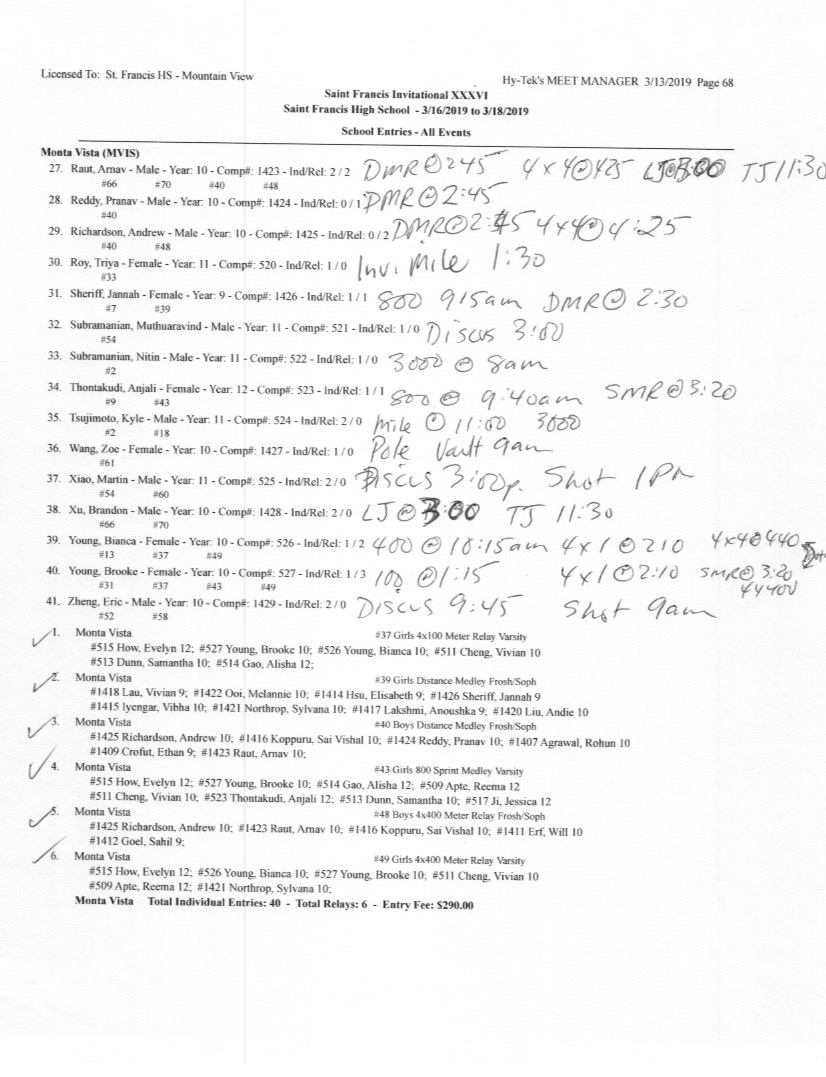 Licensed To: St. Francis HS - Mountain View
Hy-Tek's MEET MANAGER 3/13/2019 Page 68
Saint Francis Invitational XXXVI
Saint Francis High School - 3/16/2019 to 3/18/2019
School Entries - All Events
Monta Vista (MVIS)
27. Raut, Arnav - Male - Year: 10 - Comp#: 1423 - Ind/Rel: 2 / 2 DMR @ 245 4x4@425 LJ@3:00 TJ 11:30
#66 #70 #40 #48
28. Reddy, Pranav - Male - Year: 10 - Comp#: 1424 - Ind/Rel: 0 / 1 DMR @ 2:45
#40
29. Richardson, Andrew - Male - Year: 10 - Comp#: 1425 - Ind/Rel: 0 / 2 DMR@2:45 4x4@ 4:25
#40 #48
30. Roy, Triya - Female - Year: 11 - Comp#: 520 - Ind/Rel: 1 / 0 Inv. Mile 1:30
#33
31. Sheriff, Jannah - Female - Year: 9 - Comp#: 1426 - Ind/Rel: 1 / 1 800 915am DMR@ 2:30
#7 #39
32. Subramanian, Muthuaravind - Male - Year: 11 - Comp#: 521 - Ind/Rel: 1 / 0 Discus 3:00
#54
33. Subramanian, Nitin - Male - Year: 11 - Comp#: 522 - Ind/Rel: 1 / 0 3000 @ 8am
#2
34. Thontakudi, Anjali - Female - Year: 12 - Comp#: 523 - Ind/Rel: 1 / 1 800 @ 9:40am SMR@3:20
#9 #43
35. Tsujimoto, Kyle - Male - Year: 11 - Comp#: 524 - Ind/Rel: 2 / 0 Mile @ 11:00 3000
#2 #18
36. Wang, Zoe - Female - Year: 10 - Comp#: 1427 - Ind/Rel: 1 / 0 Pole Vault 9am
#61
37. Xiao, Martin - Male - Year: 11 - Comp#: 525 - Ind/Rel: 2 / 0 Discus 3:00p. Shot 1PM
#54 #60
38. Xu, Brandon - Male - Year: 10 - Comp#: 1428 - Ind/Rel: 2 / 0 LJ@3:00 TJ 11:30
#66 #70
39. Young, Bianca - Female - Year: 10 - Comp#: 526 - Ind/Rel: 1 / 2 400 @ 10:15am 4x1 @ 210 4x4@440
#13 #37 #49
40. Young, Brooke - Female - Year: 10 - Comp#: 527 - Ind/Rel: 1 / 3 100 @1:15 4x1 @ 2:10 SMR@ 3:20
#31 #37 #43 #49 4x400
41. Zheng, Eric - Male - Year: 10 - Comp#: 1429 - Ind/Rel: 2 / 0 Discus 9:45 Shot 9am
#52 #58
1. Monta Vista #37 Girls 4x100 Meter Relay Varsity
#515 How, Evelyn 12; #527 Young, Brooke 10; #526 Young, Bianca 10; #511 Cheng, Vivian 10
#513 Dunn, Samantha 10; #514 Gao, Alisha 12;
2. Monta Vista #39 Girls Distance Medley Frosh/Soph
#1418 Lau, Vivian 9; #1422 Ooi, Melannie 10; #1414 Hsu, Elisabeth 9; #1426 Sheriff, Jannah 9
#1415 Iyengar, Vibha 10; #1421 Northrop, Sylvana 10; #1417 Lakshmi, Anoushka 9; #1420 Liu, Andie 10
3. Monta Vista #40 Boys Distance Medley Frosh/Soph
#1425 Richardson, Andrew 10; #1416 Koppuru, Sai Vishal 10; #1424 Reddy, Pranav 10; #1407 Agrawal, Rohun 10
#1409 Crofut, Ethan 9; #1423 Raut, Arnav 10;
4. Monta Vista #43 Girls 800 Sprint Medley Varsity
#515 How, Evelyn 12; #527 Young, Brooke 10; #514 Gao, Alisha 12; #509 Apte, Reema 12
#511 Cheng, Vivian 10; #523 Thontakudi, Anjali 12; #513 Dunn, Samantha 10; #517 Ji, Jessica 12
5. Monta Vista #48 Boys 4x400 Meter Relay Frosh/Soph
#1425 Richardson, Andrew 10; #1423 Raut, Arnav 10; #1416 Koppuru, Sai Vishal 10; #1411 Erf, Will 10
#1412 Goel, Sahil 9;
6. Monta Vista #49 Girls 4x400 Meter Relay Varsity
#515 How, Evelyn 12; #526 Young, Bianca 10; #527 Young, Brooke 10; #511 Cheng, Vivian 10
#509 Apte, Reema 12; #1421 Northrop, Sylvana 10;
Monta Vista Total Individual Entries: 40 - Total Relays: 6 - Entry Fee: $290.00